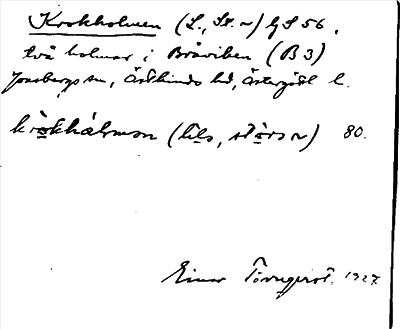 Krokholmen (L., St. ~) GS 56,
två holmar i Bråviken (B 3)
Jonsbergs sn, Östkinds hd, Östergötl. l.
krøkhålmən (lila, støra ~) 80.
Einar Törnqvist. 1927.